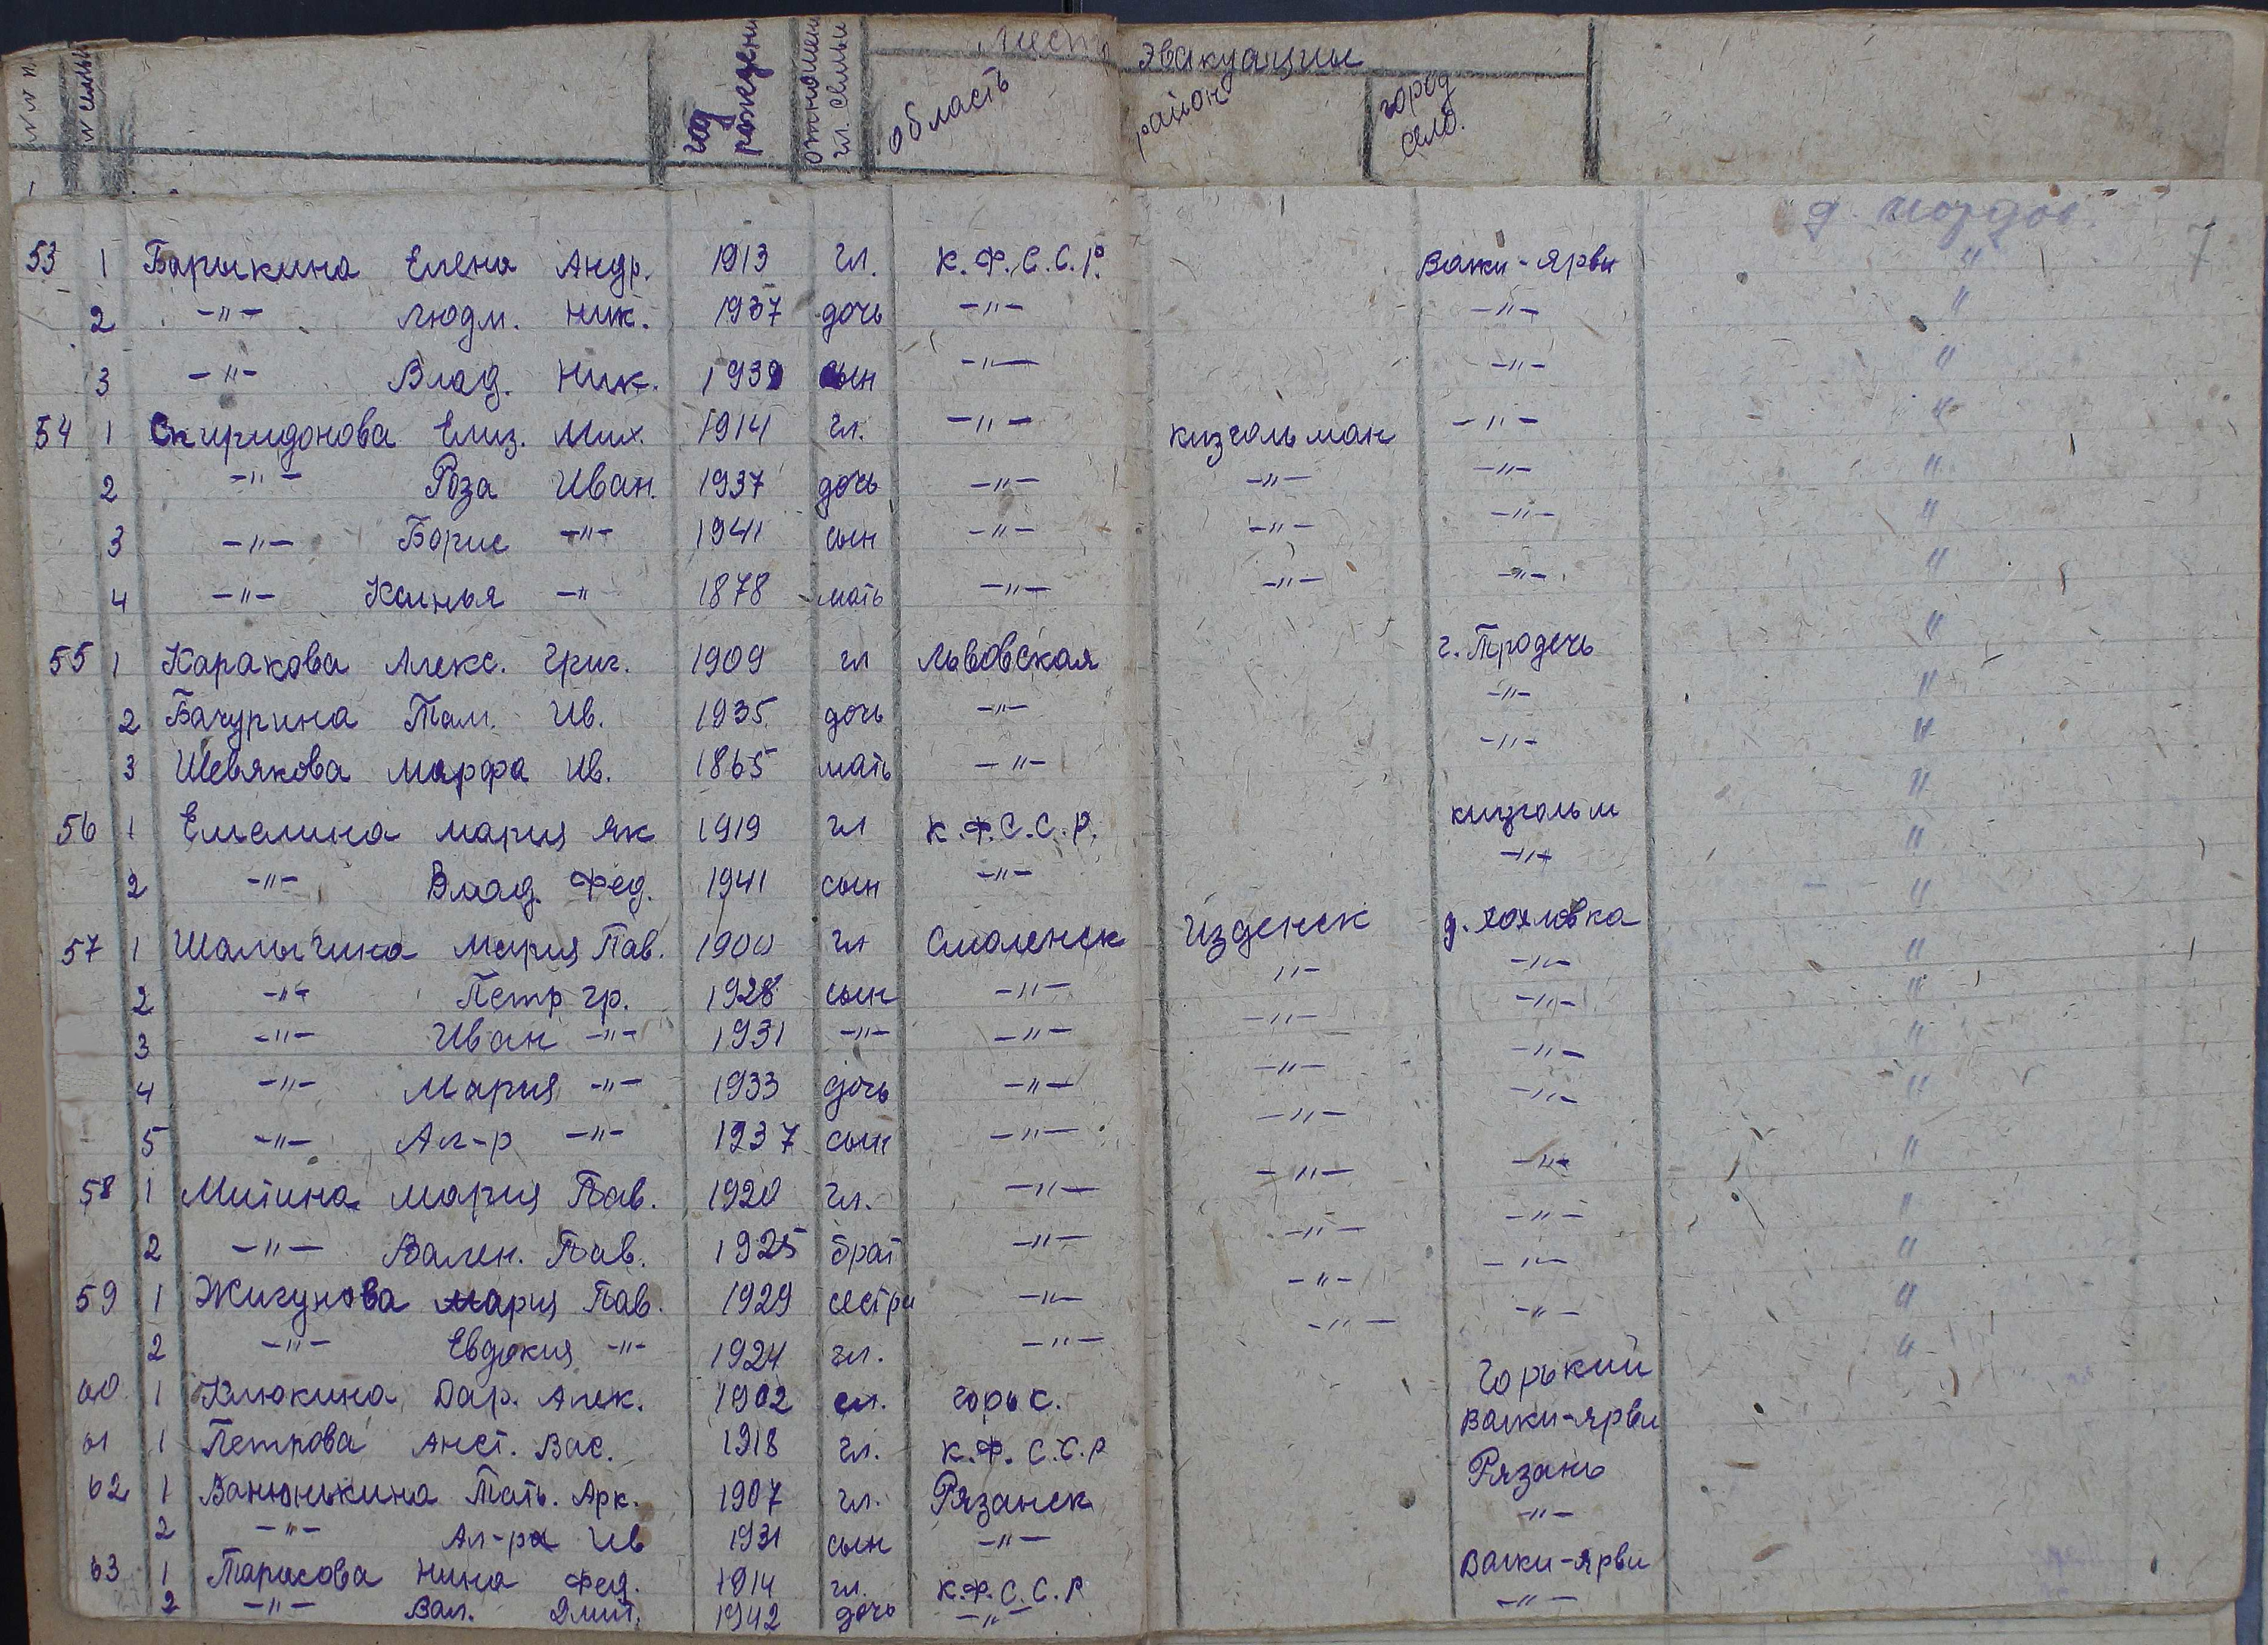 N N п. N семьи год рождени отношен гл. семьи мест эвакуации
область район город село.
д. мордов. 7
53 1 Барыкина Елена Андр. 1913 гл. К.Ф.С.С.Р. Вакки-Ярви "
2 -"- Людм. Ник. 1937 дочь -"- -"- "
3 -"- Влад. Ник. 1939 сын -"- -"- "
54 1 Спиридонова Елиз. Мих. 1914 гл. -"- кизгольман -"- "
2 -"- Роза Иван. 1937 дочь -"- -"- -"- "
3 -"- Борис -"- 1941 сын -"- -"- -"- "
4 -"- -"- 1878 мать -"- -"- -"- "
55 1 Каракова Алекс. Григ. 1909 гл Львовская г. "
2 Бачурина Там. Ив. 1935 дочь -"- -"- "
3 Шевякова Марфа Ив. 1865 мать -"- -"- "
56 1 Емелина Мария Як 1919 гл К.Ф.С.С.Р. кизгольм "
2 -"- Влад. Фед. 1941 сын -"- -"- "
57 1 Шалыгина Мария Пав. 1900 гл Смоленск Изденск д. Хохловка "
2 -"- Петр Гр. 1928 сын -"- "- -"- "
3 -"- Иван -"- 1931 -"- -"- -"- -"- "
4 -"- Мария -"- 1933 дочь -"- -"- -"- "
5 -"- Ал-р -"- 1937 сын -"- -"- -"- "
58 1 Митина Мария Пав. 1920 гл. -"- -"- -"- "
2 -"- Вален. Пав. 1925 брат -"- -"- -"- "
59 1 Жигунова Мария Пав. 1929 сестра -"- -"- -"- "
2 -"- Евдокия -"- 1924 гл. -"- -"- -"- "
60 1 Клюкина Дар. Алек. 1902 гл. Горьк. Горький "
61 1 Петрова Анст. Вас. 1918 гл. К.Ф.С.С.Р Вакки-Ярви
62 1 Ванюнькина Тать. Арк. 1907 гл. Рязанск Рязань
2 -"- Ал-ра Ив 1931 сын -"- -"-
63 1 Тарасова Нина Фед. 1914 гл. К.Ф.С.С.Р Вакки-Ярви
2 -"- Вал. Дмит. 1942 дочь -"- -"-